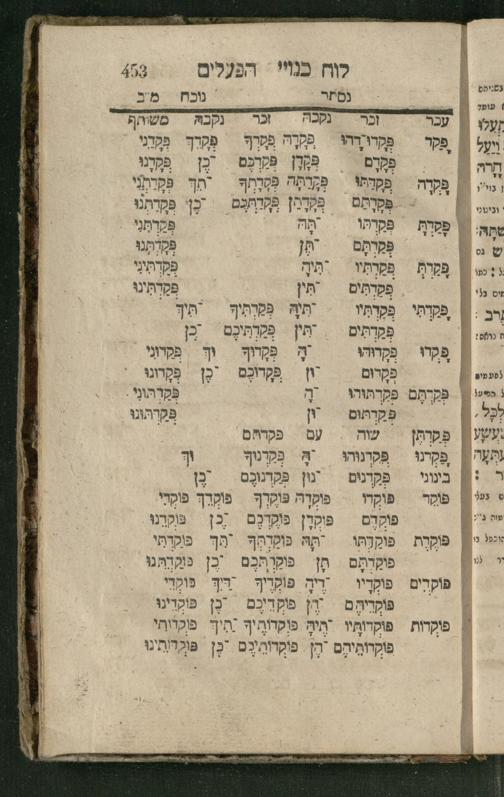 לוח כנויי הפעלים 453
נסתר נוכח מ״ב
עבר זכר נקבה זכר נקבה משותף
פָּקַד פְּקָדוֹ־דָהוּ פְּקָדָהּ פְּקָדְךָ פְּקָדֵךְ פְּקָדַנִי
פְּקָדָם פְּקָדָן פְּקָדְכֶם ־כֶן פְּקָדָנוּ
פָּקְדָה פְּקָדַתּוּ פְּקָדַתָּה פְּקָדַתְךָ ־תֵךְ פְּקָדַתְנִי
פְּקָדָתַם פְּקָדָתַן פְּקָדַתְכֶם ־כֶן פְּקָדַתְנוּ
פָּקַדְתָּ פְּקַדְתּוֹ ־תָּהּ פְּקַדְתַּנִי
פְּקַדְתָּם ־תָּן פְּקַדְתָּנוּ
פָּקַדְתְּ פְּקַדְתִּיו ־תִּיהָ פְּקַדְתִּינִי
פְּקַדְתִּים ־תִּין פְּקַדְתִּינוּ
פָּקַדְתִּי פְּקַדְתִּיו ־תִּיהָ פְּקַדְתִּיךָ ־תִּיךְ
פְּקַדְתִּים ־תִּין פְּקַדְתִּיכֶם ־כֶן
פָּקְדוּ פְּקָדוּהוּ ־הָ פְּקָדוּךָ וּךְ פְּקָדוּנִי
פְּקָדוּם ־וּן פְּקָדוּכֶם ־כֶן פְּקָדוּנוּ
פְּקַדְתֶּם פְּקַדְתּוּהוּ ־הָ פְּקַדְתּוּנִי
פְּקַדְתּוּם ־וּן פְּקַדְתּוּנוּ
פְּקַדְתֶּן שוה עם פקדתם
פָּקַדְנוּ פְּקַדְנוּהוּ ־הָ פְּקַדְנוּךָ וּךְ
בינוני פְּקַדְנוּם ־נוּן פְּקַדְנוּכֶם ־כֶן
פּוֹקֵד פּוֹקְדוֹ פּוֹקְדָהּ פּוֹקֶדְךָ פּוֹקְדֵךְ פּוֹקְדִי
פּוֹקְדָם פּוֹקְדָן פּוֹקֶדְכֶם ־כֶן פּוֹקְדֵנוּ
פּוֹקֶדֶת פּוֹקַדְתּוֹ ־תָּהּ פּוֹקַדְתְּךָ ־תֵּךְ פּוֹקַדְתִּי
פּוֹקַדְתָּם תָּן פּוֹקַדְתְּכֶם ־כֶן פּוֹקַדְתֵּנוּ
פּוֹקְדִים פּוֹקְדָיו ־דֶיהָ פּוֹקְדֶיךָ ־דַיִךְ פּוֹקְדַי
פּוֹקְדֵיהֶם ־הֶן פּוֹקְדֵיכֶם ־כֶן פּוֹקְדֵינוּ
פּוֹקְדוֹת פּוֹקְדוֹתָיו ־תֶיהָ פּוֹקְדוֹתֶיךָ ־תַיִךְ פּוֹקְדוֹתַי
פּוֹקְדוֹתֵיהֶם ־הֶן פּוֹקְדוֹתֵיכֶם ־כֶן פּוֹקְדוֹתֵינוּ